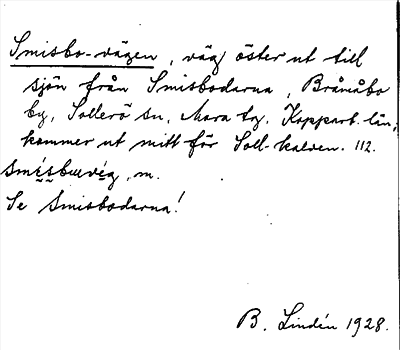 Smisbo-vägen, väg öster ut till
sjön från Smisbodarna, Bråmåbo
by, Sollerö sn, Mora tg, Kopparb. län,
kommer ut mitt för Soll-kalven. 112.
smésbuvég, m.
Se Smisbodarna!
B. Lindén 1928.